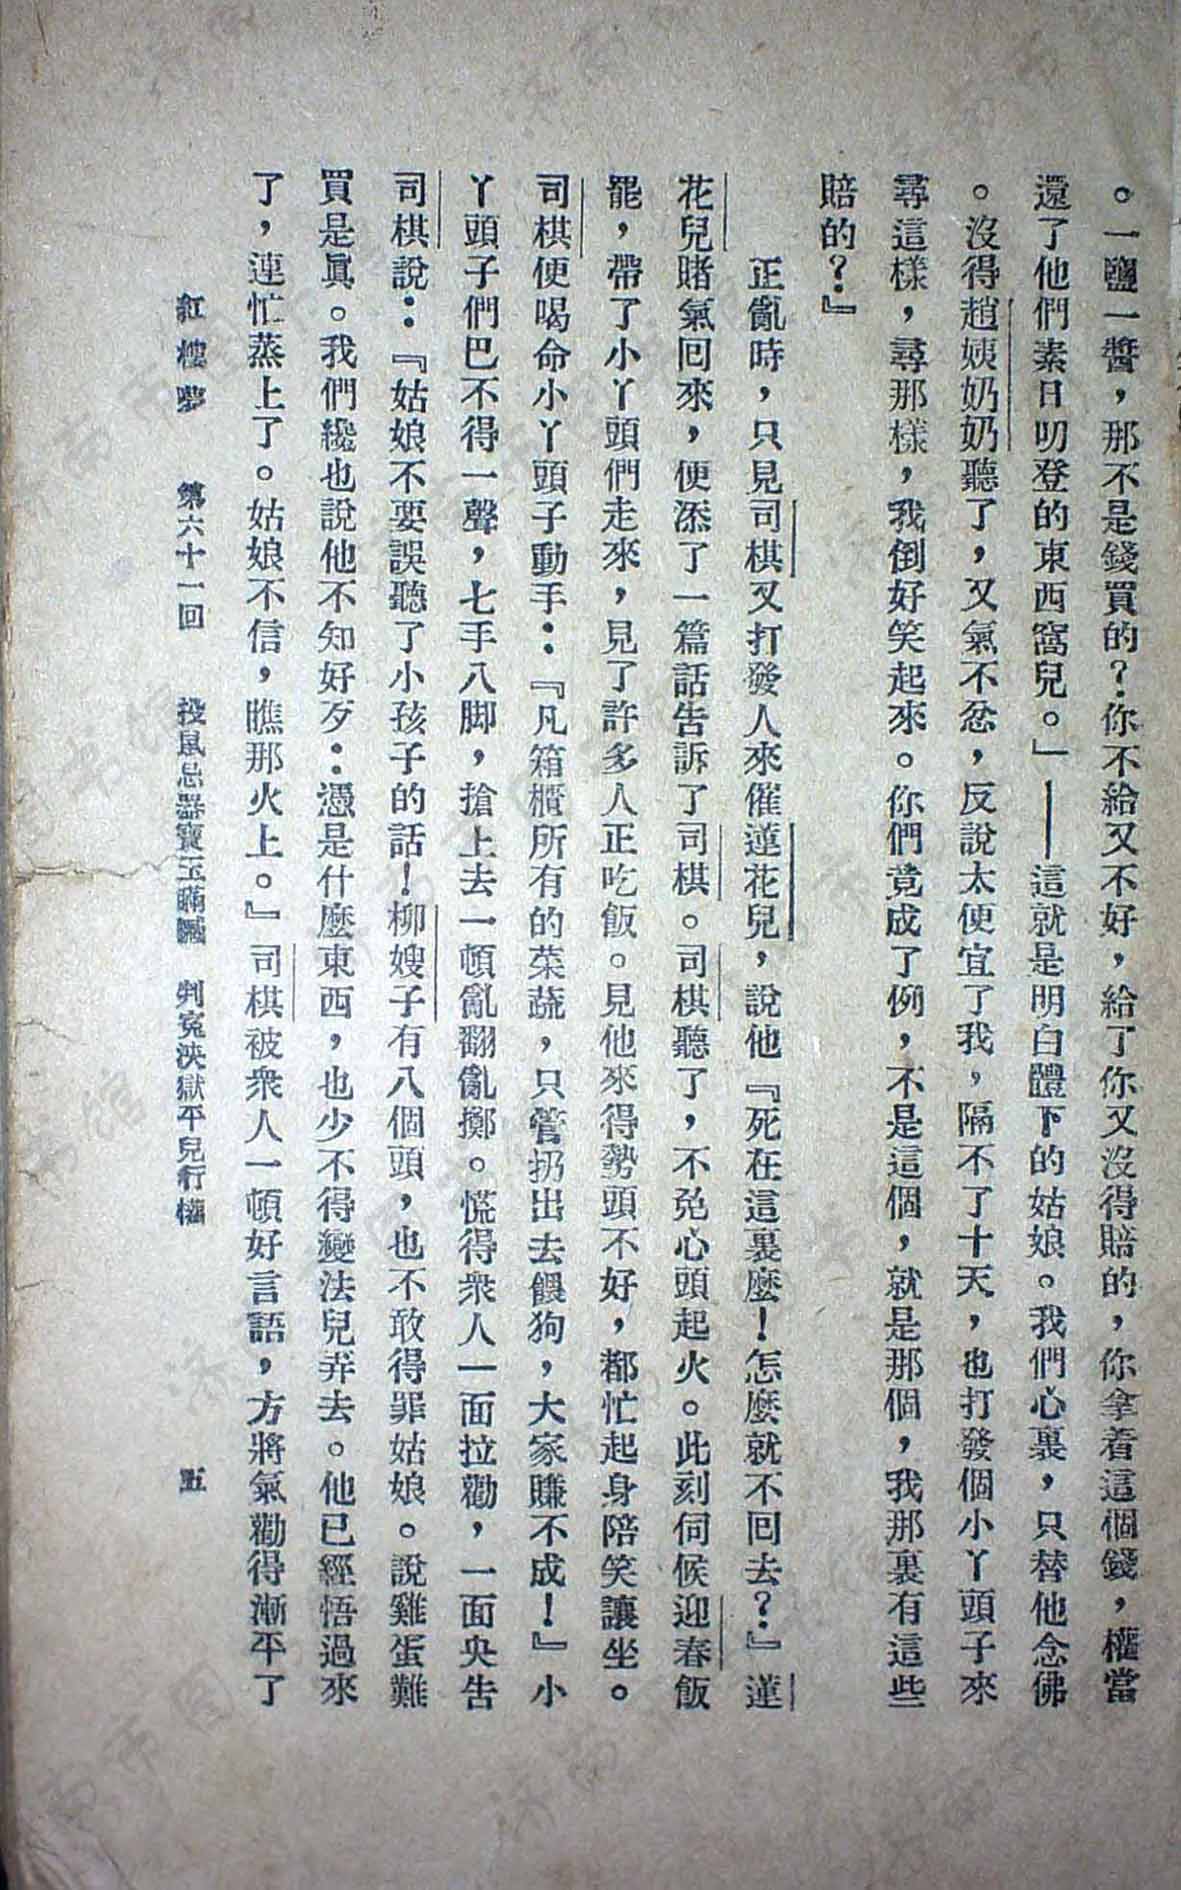 。一鹽一醬，那不是錢買的？你不給又不好，給了你又沒得賠的，你拿着這個錢，權當
還了他們素日叨登的東西窩兒。」——這就是明白體下的姑娘。我們心裏，只替他念佛
。沒得趙姨奶奶聽了，又氣不忿，反說太便宜了我，隔不了十天，也打發個小丫頭子來
尋這樣，尋那樣，我倒好笑起來。你們竟成了例，不是這個，就是那個，我那裏有這些
賠的？』
正亂時，只見司棋又打發人來催蓮花兒，說他『死在這裏麼！怎麼就不回去？』蓮
花兒賭氣回來，便添了一篇話告訴了司棋。司棋聽了，不免心頭起火。此刻伺候迎春飯
罷，帶了小丫頭們走來，見了許多人正吃飯。見他來得勢頭不好，都忙起身陪笑讓坐。
司棋便喝命小丫頭子動手：『凡箱櫃所有的菜蔬，只管扔出去餵狗，大家賺不成！』小
丫頭子們巴不得一聲，七手八脚，搶上去一頓亂翻亂擲。慌得衆人一面拉勸，一面央告
司棋說：『姑娘不要誤聽了小孩子的話！柳嫂子有八個頭，也不敢得罪姑娘。說雞蛋難
買是眞。我們纔也說他不知好歹：憑是什麼東西，也少不得變法兒弄去。他已經悟過來
了，連忙蒸上了。姑娘不信，瞧那火上。』司棋被衆人一頓好言語，方將氣勸得漸平了
紅樓夢　第六十一回　投鼠忌器寶玉瞞贓　判冤決獄平兒行權　五